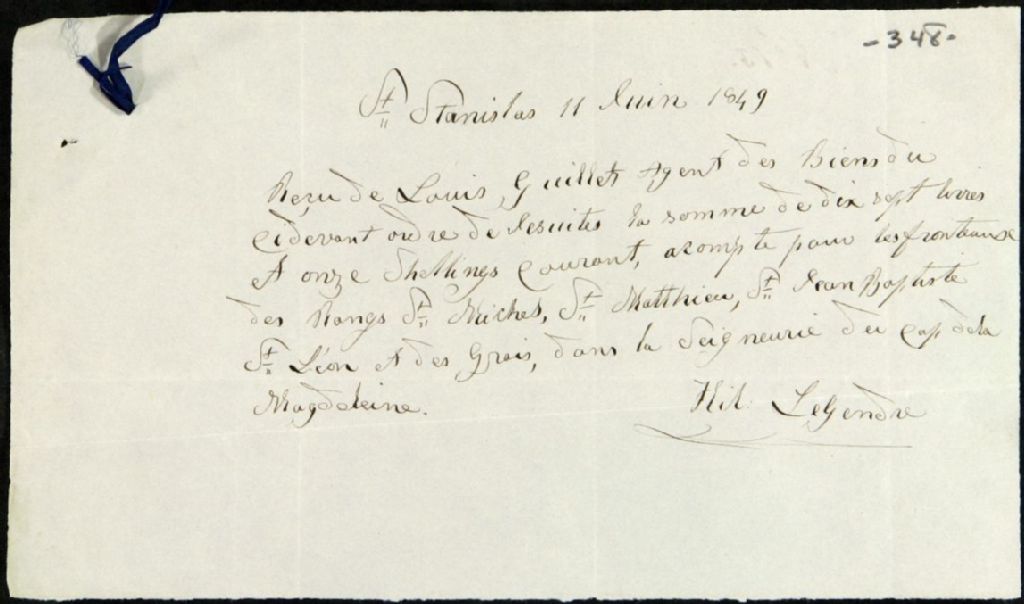 -348-
St Stanislas 11 Juin 1849
Reçu de Louis Guillet Agent des Biens du
cidevant ordre de Jesuites la somme de dix sept livres
et onze Shellings Courant, acompte pour les fronteaux
des Rangs St Michel, St Matthieu, St Jean Baptiste
St Léon et des Grais, dans la Seigneurie du Cap dela
Magdeleine.
Hil. LeGendre